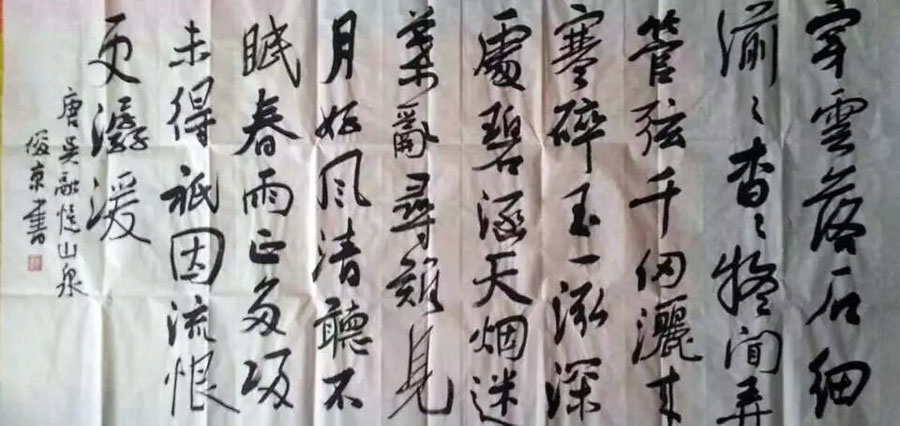 穿雲落石細
湔〻杳〻疑聞弄
管弦千仞灑来
寒碎玉一泓深
處碧涵天烟迷
葉亂尋難見
月好風清聽不
眠春雨正多歸
未得祇因流恨
更潺湲
唐吳融憶山泉
俊東書